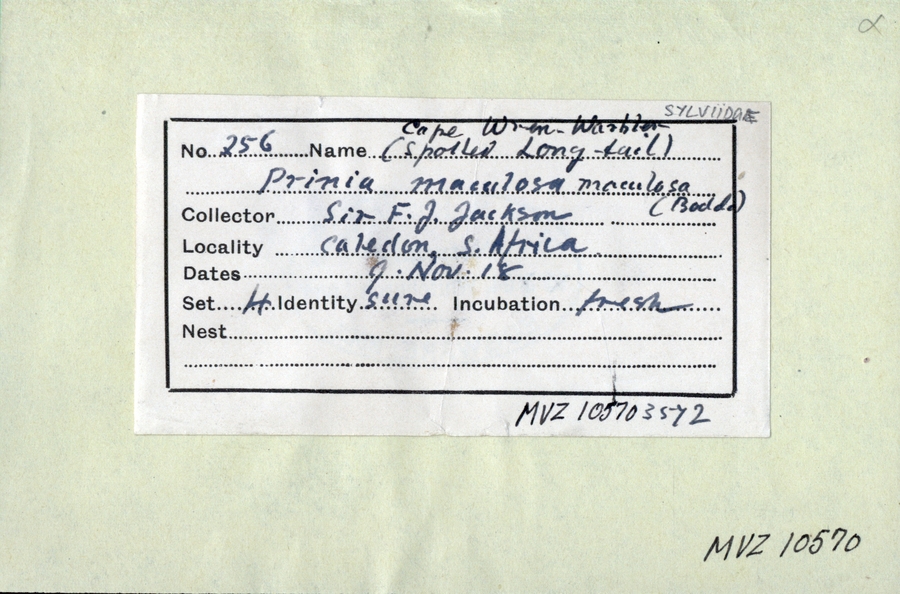 α
SYLVIIDAE
Cape Wren-Warbler
No. 256 Name (Spotted Long-tail)
Prinia maculosa maculosa
(Bodd)
Collector Sir F. J. Jackson
Locality Caledon, S. Africa
Dates 9. Nov. 18
Set 4. Identity sure Incubation fresh
Nest
MVZ 10570 3572
MVZ 10570